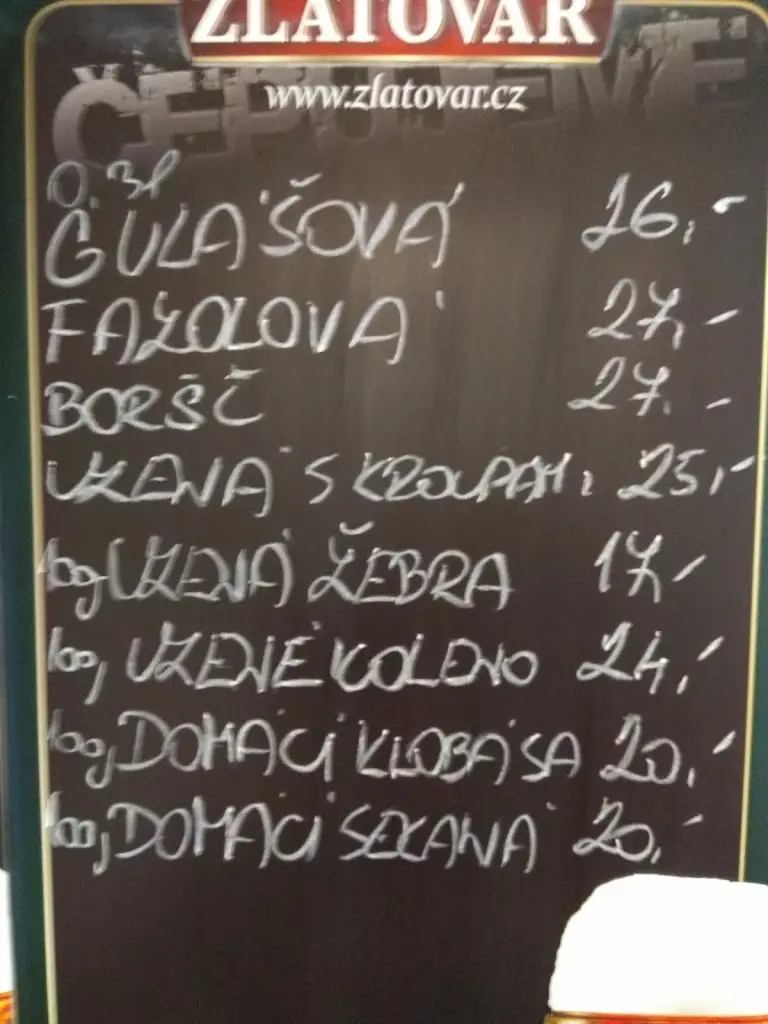 ZLATOVAR
ČEPUJEME
www.zlatovar.cz
0.3l
GULÁŠOVÁ 26,-
FAZOLOVÁ 27,-
BORŠČ 27.-
UZENÁ S KROUPAMI 25,-
100g UZENÁ ŽEBRA 17,-
100g UZENÉ KOLENO 24,-
100g DOMÁCÍ KLOBÁSA 20,-
100g DOMÁCÍ SEKANÁ 20,-